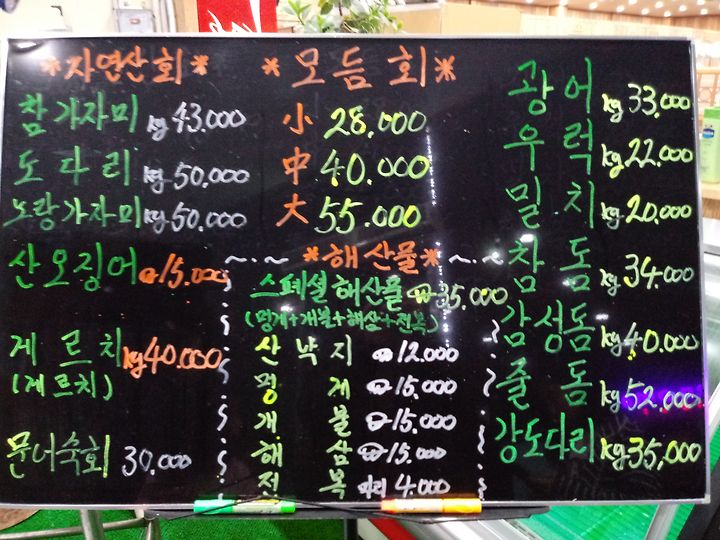 *자연산회*
참가자미 kg 43.000
도다리 kg 50.000
노랑가자미 kg 50.000
산오징어 15.000
게르치 kg 40.000
(게르치)
문어숙회 30.000
*모듬회*
小 28.000
中 40.000
大 55.000
*해산물*
스페셜 해산물 35.000
(멍게+개불+해삼+전복)
산낙지 12.000
멍게 15.000
개불 15.000
해삼 15.000
전복 마리 4.000
광어 kg 33.000
우럭 kg 22.000
밀치 kg 20.000
참돔 kg 34.000
감성돔 kg 40.000
줄돔 kg 52.000
강도다리 kg 35,000